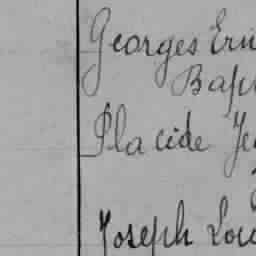 Georges Ern
Bap
Placide Je
Joseph Lou